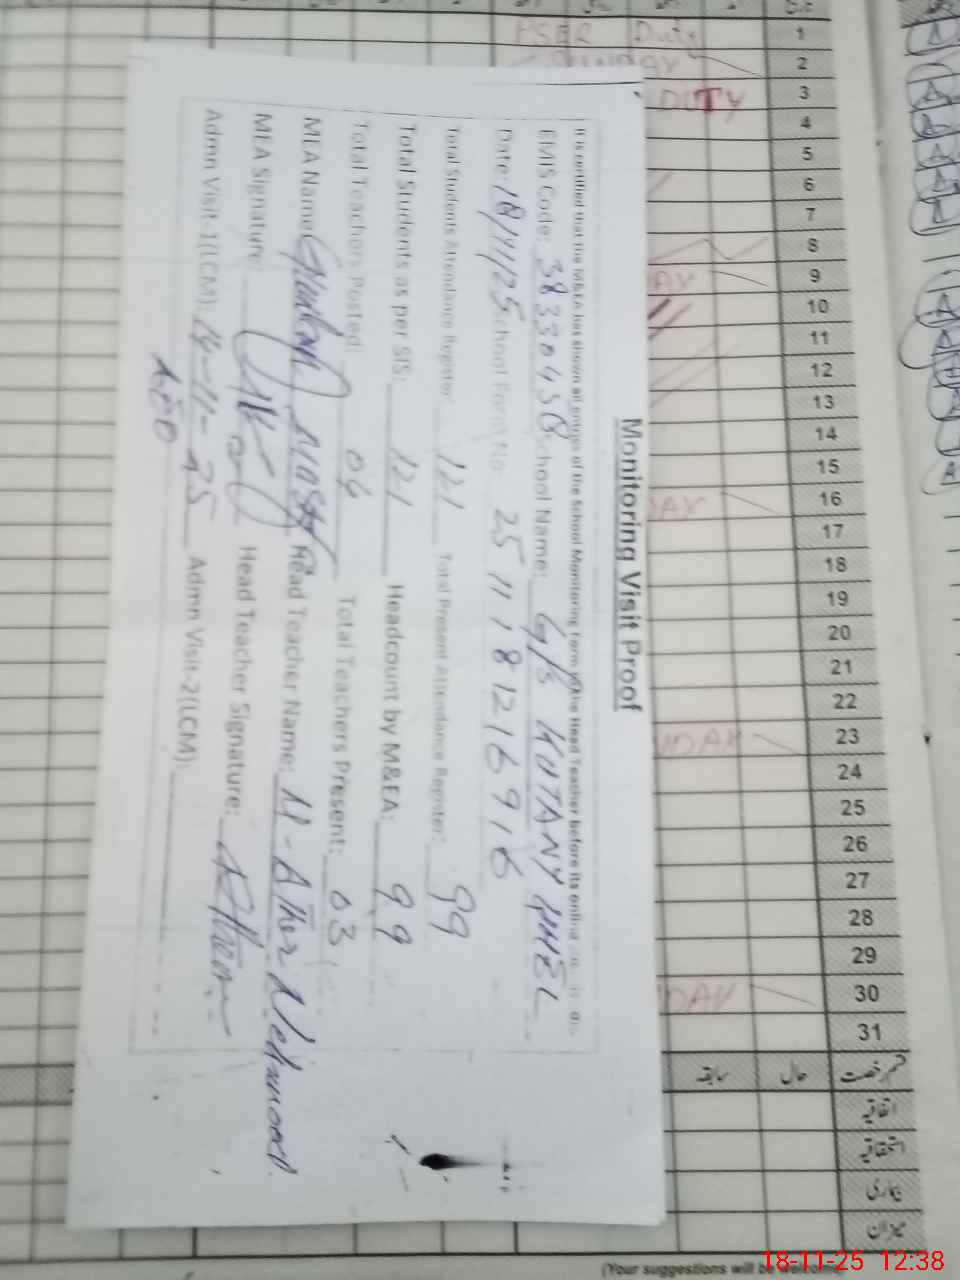 Monitoring Visit Proof
It is certified that the M&EA has shown all entries of the School Monitoring Form to the Head Teacher before its online
EMIS Code: 38330450 School Name: G/S KOTANY KHEL
Date: 18/11/25 School Form No. 25 11 18 12 16 9 16
Total Students Attendance Register: 121 Total Present Attendance Register: 99
Total Students as per SIS: 121 Headcount by M&EA: 99
Total Teachers Posted: 04 Total Teachers Present: 03
MEA Name: Head Teacher Name: M-Ather Mehmood
MEA Signature: Head Teacher Signature:
Admn Visit-1(LCM): 14-11-25 Admn Visit-2(LCM):
PSER Duty
SUNDAY
DUTY
1
2
3
4
5
6
7
8
9
10
11
12
13
14
15
16
17
18
19
20
21
22
23
24
25
26
27
28
29
30
31
قسم رخصت حال سابقہ
اتفاقیہ
استحقاقیہ
بیماری
میزان
(Your suggestions will be welcome
18-11-25 12:38